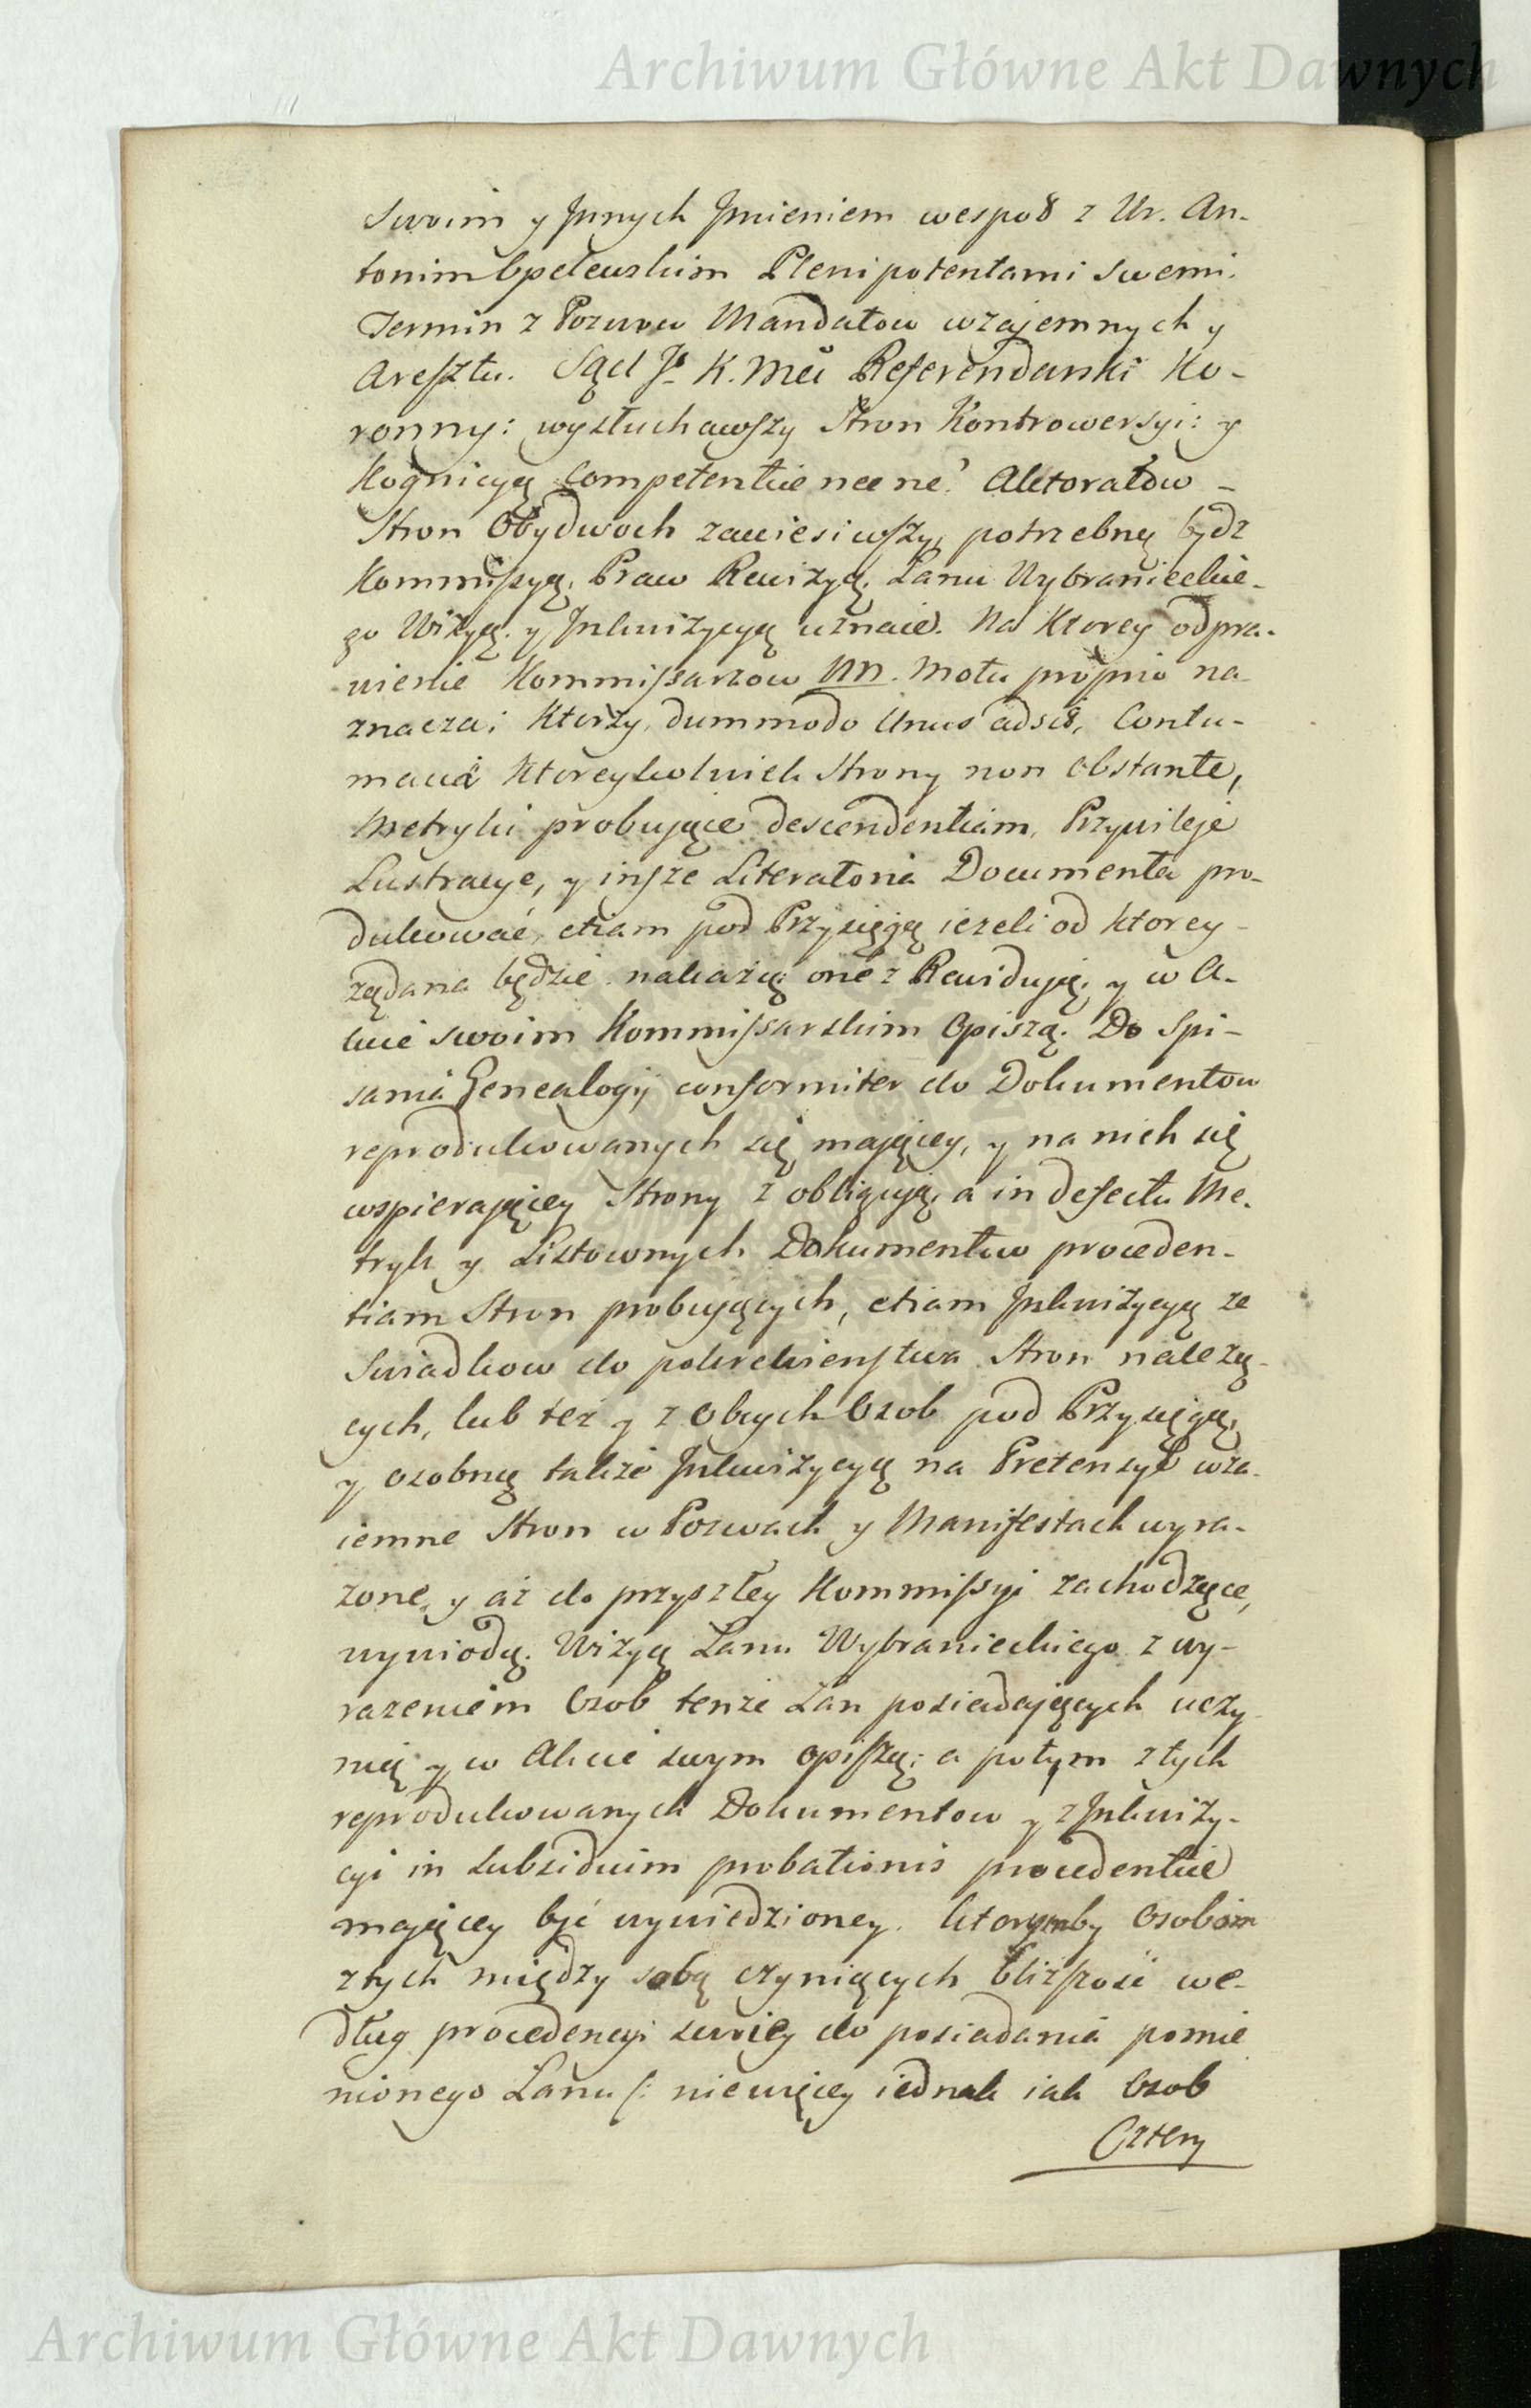 Archiwum Główne Akt Dawnych
Swoim y Jnnych Jmieniem wespoł z Ur. An-
tonim Plenipotentami Swemi.
Termin z Pozwow Mandatow wzajemnych y
Aresztu. Sąd Jº K. Mci Referendarski Ko-
ronny: wysłuchawszy Stron Kontrowersyi: y
Kognicyą Competentiæ nec ne? Aktoratow -
Stron Obydwoch zawiesiwszy, potrzebną bydz
Kommissyą, Praw Rewizyą, Łanu Wybranieckie-
go Wizyą, y Jnkwizycyą uznaie. Na Ktorey odpra-
wienie Kommissarzow NN. Motu proprio na-
znacza; Ktorzy, dummodo Unus adsit, Contu-
macia Ktoreykolwiek Strony non obstante,
Metryki probuiące descendentiam, Przywileje
Lustracye, y insze Literatoria Documenta pro-
dukować, etiam pod Przysięgą ieżeli od Ktorey-
żądana będzie nakażą: one z Rewidują, y w A-
kcie swoim Kommissarskim Opiszą. Do Spi-
sania Genealogij conformiter do Dokumentow
reprodukowanych się maiącey, y na nich się
wspieraiącey Strony z obligują, a in defectu Me-
tryk y Listownych Dokumentow proceden-
tiam Stron probuiących, etiam Jnkwizycyą ze
Swiadkow do pokrewienstwa Stron należą-
cych, lub też y z Obcych Osob pod Przysięgą,
y osobną także Jnkwizycyą na Pretensye wza-
iemne Stron w Pozwach y Manifestach wyra-
żone, y aż do przyszłey Kommissyi zachodzące,
wywiodą. Wizyą Łanu Wybranieckiego z wy-
rażeniem Osob tenże Łan posiadaiących uczy-
nią y w Akcie swym opiszą; a potym z tych
reprodukowanych Dokumentow y z Jnkwizy-
cyi in subsidium probationis procedentiæ
maiącey być wywiedzioney. Ktorymby Osobom
z tych między sobą czyniących bliższość we-
dług procedencyi swoiey do posiadania pomie
nionego Łanu /: niewięcey iednak iak Osob
Cztery
Archiwum Główne Akt Dawnych